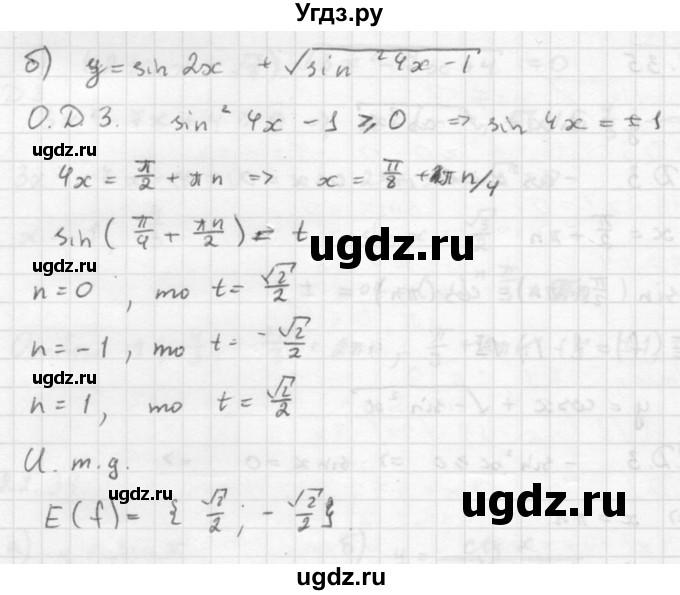 Угдз.ру
б) y = sin 2x + √(sin ²4x − 1)
О.Д.З. sin² 4x − 1 ⩾ 0 => sin 4x = ± 1
ugdz.ru
4x = π/2 + πn => x = π/8 + πn/4
sin ( π/4 + πn/2 ) = t
ugdz.ru
ugdz.ru
n = 0 , то t = √2/2
n = −1 , то t = −√2/2
ugdz.ru
n = 1 , то t = √2/2
И. т.д.
ugdz.ru
ugdz.ru
E (f) = { √2/2 ; − √2/2 }
ugdz.ru